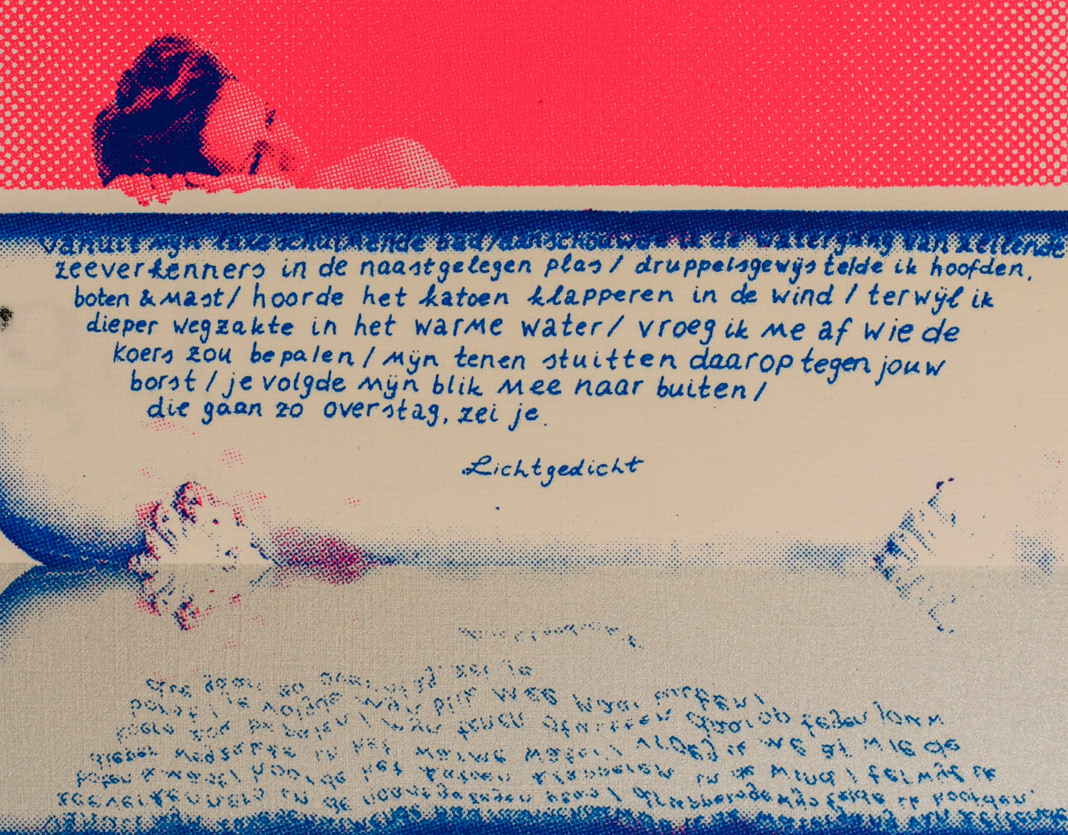 vanuit mijn luxe schuimende bad/aanschouwde ik de watergang van zeilende
zeeverkenners in de naastgelegen plas / druppelsgewijs telde ik hoofden,
boten & mast / hoorde het katoen klapperen in de wind / terwijl ik
dieper wegzakte in het warme water / vroeg ik me af wie de
koers zou bepalen / mijn tenen stuitten daarop tegen jouw
borst / je volgde mijn blik mee naar buiten /
die gaan zo overstag, zei je.
Lichtgedicht